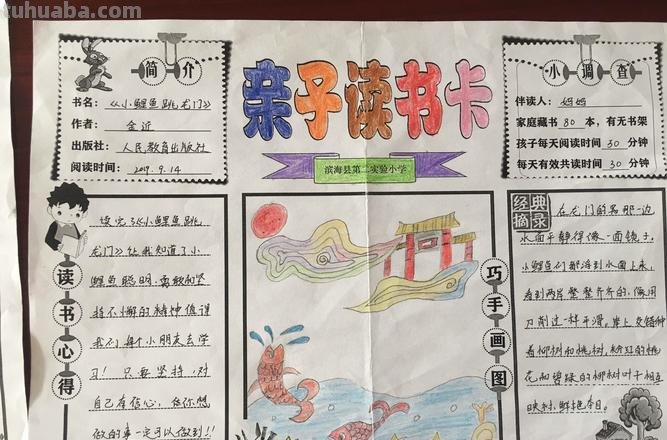 tuhuaba.com
简介
书名：《小鲤鱼跳龙门》
作者：金近
出版社：人民教育出版社
阅读时间：2019.9.14
亲子读书卡
滨海县第二实验小学
小调查
伴读人：妈妈
家庭藏书80本，有无书架
孩子每天阅读时间30分钟
每天有效共读时间30分钟
读书心得
读完了《小鲤鱼跳
龙门》让我知道了小
鲤鱼聪明、勇敢和坚
持不懈的精神值得
我们每个小朋友去学
习！只要坚持，对
自己有信心，任你想
做的事一定可以做到！！
巧手画图
经典摘录
在龙门的另那一边
水面平静得像一面镜子，
小鲤鱼们都浮到水面上来，
看到两岸整整齐齐的，像用
刀削过一样平滑。岸上交错种
着柳树和桃树，粉红的桃
花和碧绿的柳树叶子相互
映衬，鲜艳夺目。